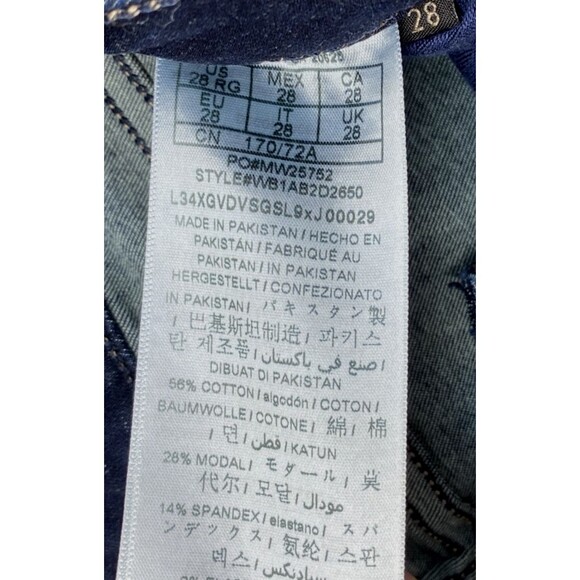 28
US
28 RG
MEX
28
CA
28
EU
28
IT
28
UK
28
CN
170/72A
PO#MW25752
STYLE#WB1AB2D2650
L34XGVDVSGSL9xJ00029
MADE IN PAKISTAN / HECHO EN
PAKISTÁN / FABRIQUÉ AU
PAKISTAN / IN PAKISTAN
HERGESTELLT / CONFEZIONATO
IN PAKISTAN / パキスタン製
/ 巴基斯坦制造 / 파키스
탄 제조품 / صنع في باكستان /
DIBUAT DI PAKISTAN
56% COTTON / algodón / COTON /
BAUMWOLLE / COTONE / 綿 / 棉
/ 면 / قطن / KATUN
28% MODAL / モダール / 莫
代尔 / 모달 / مودال
14% SPANDEX / elastano / スパ
ンデックス / 氨纶 / 스판
덱스 / سباندكس